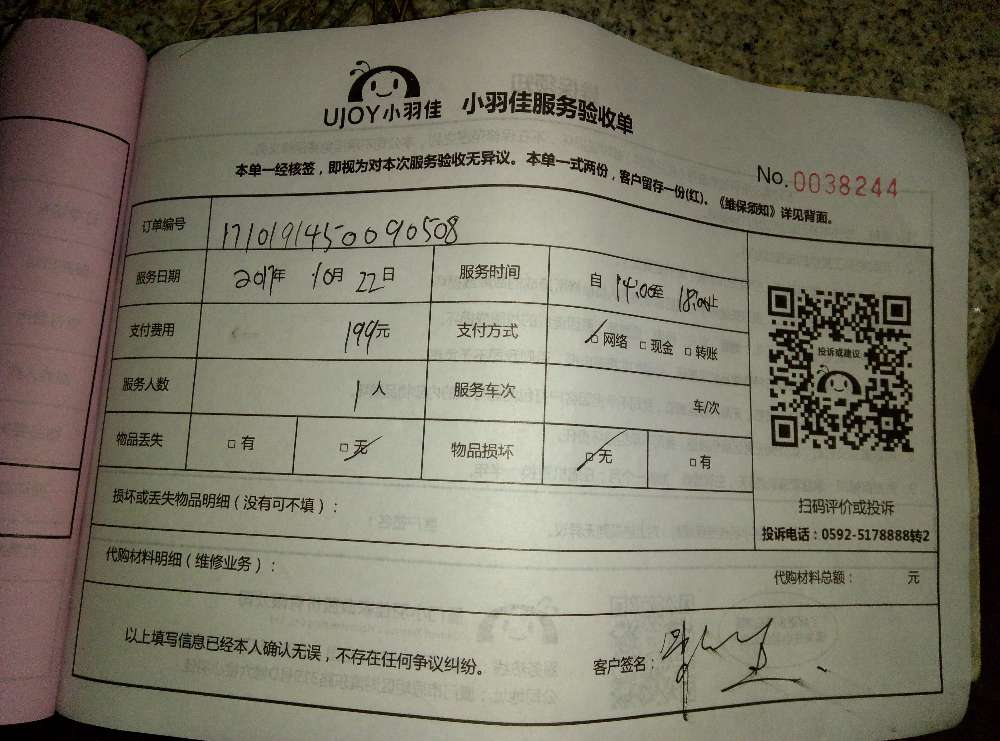 UJOY小羽佳 小羽佳服务验收单
本单一经核签，即视为对本次服务验收无异议。本单一式两份，客户留存一份(红)。《维保须知》详见背面。
No. 0038244
订单编号 1710191450090508
服务日期 2017年 10月 22日 服务时间 自 14:00至 18:00止
支付费用 199元 支付方式 □网络 □现金 □转账
服务人数 1人 服务车次 车/次
物品丢失 □有 □无 物品损坏 □无 □有
投诉或建议
扫码评价或投诉
投诉电话：0592-5178888转2
损坏或丢失物品明细（没有可不填）：
代购材料明细（维修业务）：
代购材料总额： 元
以上填写信息已经本人确认无误，不存在任何争议纠纷。
客户签名：